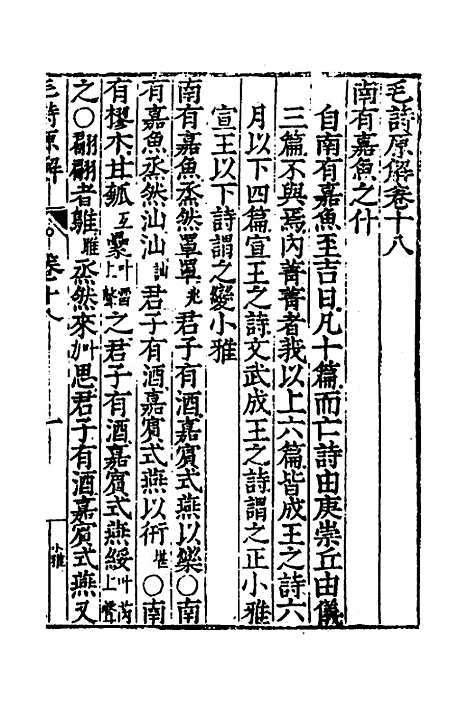 毛詩原解卷十八
南有嘉魚之什
自南有嘉魚至吉日凡十篇而亡詩由庚崇丘由儀
三篇不與焉內菁菁者我以上六篇皆成王之詩六
月以下四篇宣王之詩文武成王之詩謂之正小雅
宣王以下詩謂之變小雅
南有嘉魚烝然罩罩兆君子有酒嘉賓式燕以樂○南
有嘉魚烝然汕汕訕君子有酒嘉賓式燕以衎堪○南
有樛木甘瓠互纍叶雷上聲之君子有酒嘉賓式燕綏叶芮上聲
之○翩翩者鵻雎烝然來叶思君子有酒嘉賓式燕又
毛詩原解 卷十八 一 小雅